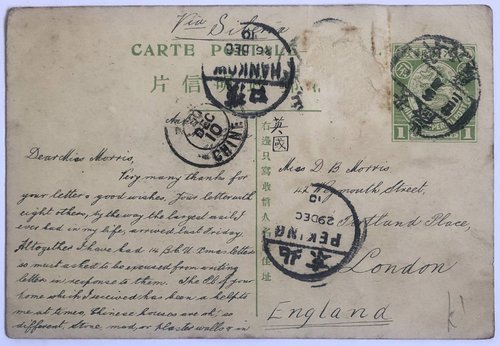 Via Siberia
CARTE POSTALE
片信
HANKOW
26 DEC
10
漢口
CHINE
DEC
10
1
1
Dear Miss Morris,
Very many thanks for
your letter & good wishes. Your letter with
eight others, by the way the largest mail I
ever had in my life, arrived last Friday.
Altogether I have had 14 Xmas letters
so must asked to be excused from writing
letter in response to them. The
home which I received has been a help to
me at times. Chinese houses are oh, so
different. Stone, mud, or plaster walls & in
右邊只寫收信人名住址
英國
Miss D B Morris
42 Weymouth Street,
Portland Place,
London
England
京北
PEKING
29 DEC
10